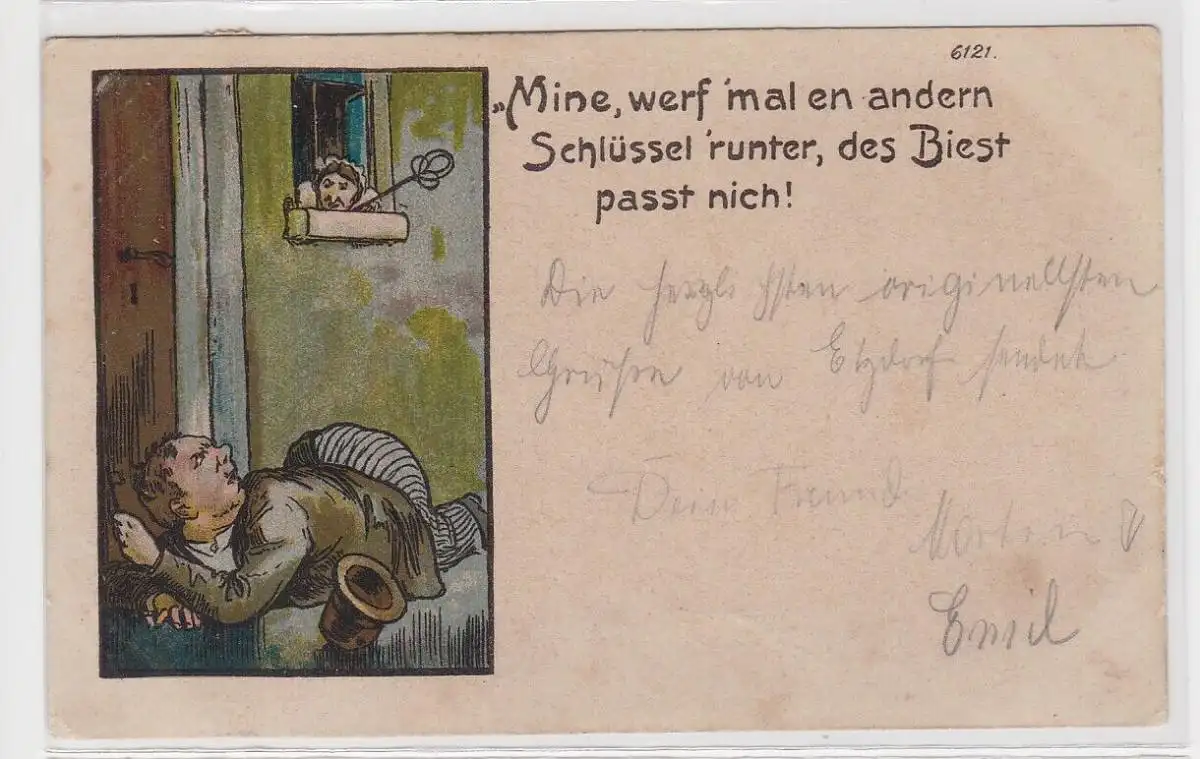 6121.
„Mine, werf 'mal en andern
Schlüssel 'runter, des Biest
passt nich!
Die herzlichsten originellsten
Grüße von Etzdorf sendet
Dein Freund
Emil